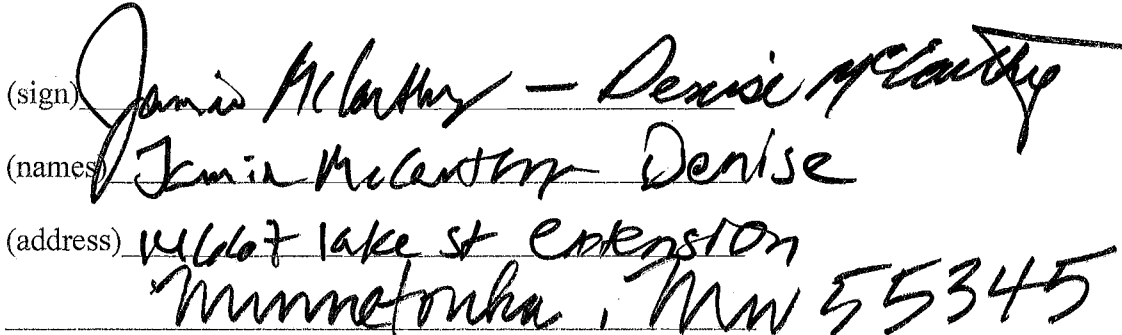 (sign) Jamin McCarthy — Denise McCarthy
(names) Jamin McCarthy Denise
(address) 14667 lake st extension
Minnetonka, MN 55345